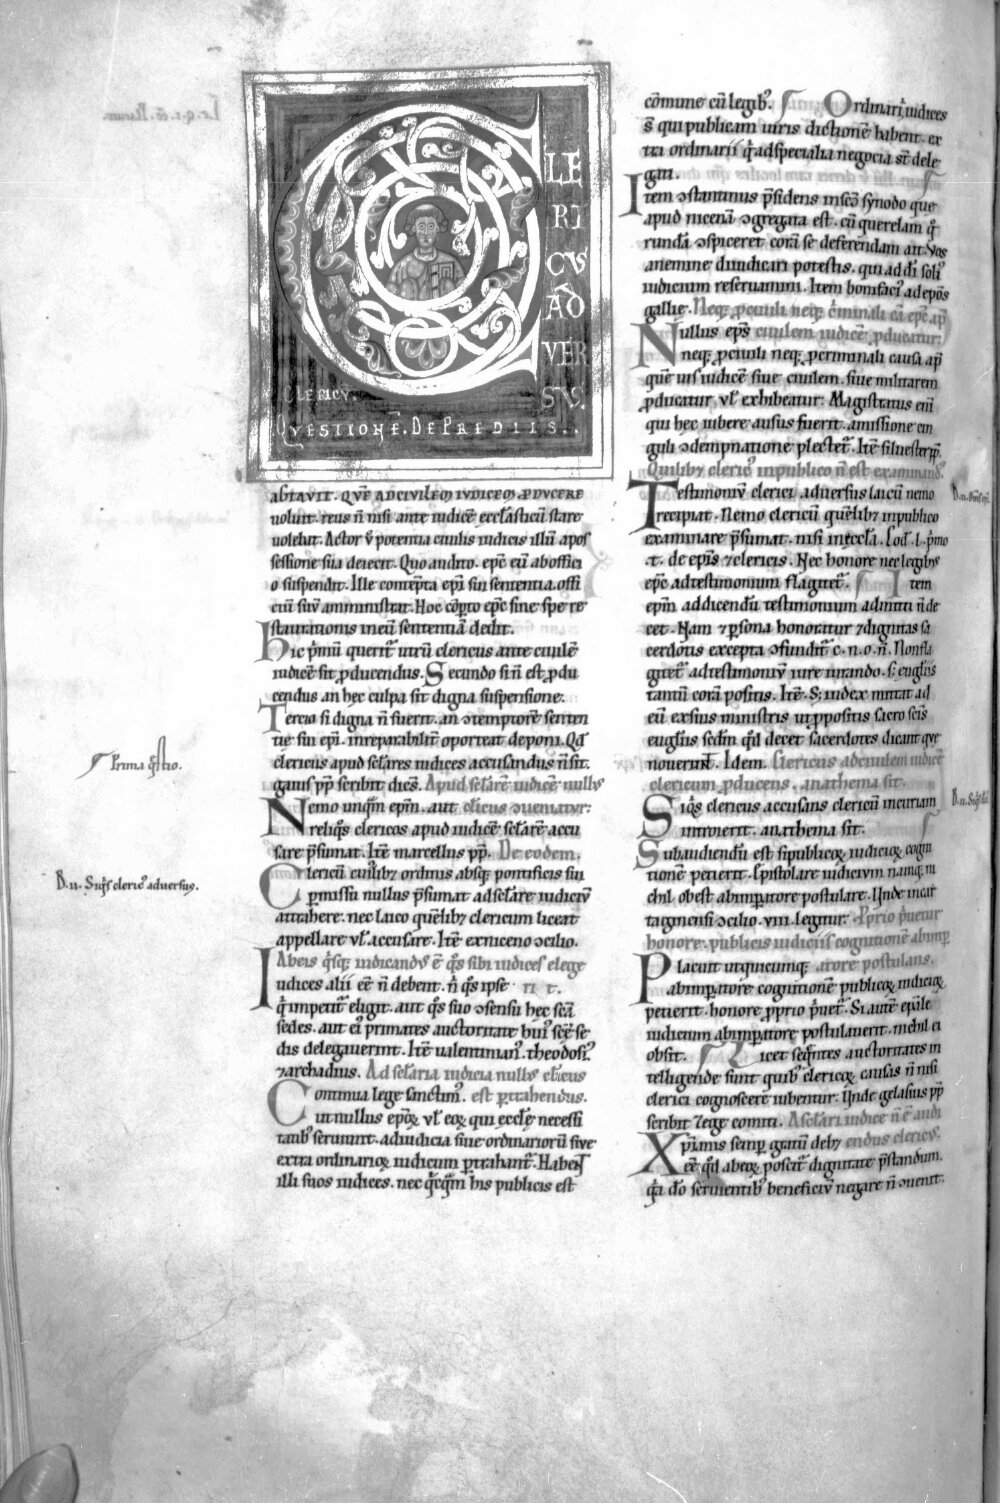 LE
RI
CV
AD
VER
SVS.
CLERICV̄
QVESTIONĒ. DE PREDIIS..
AGITAVIT. QVĒ AD CIVILEM IVDICEM. PDVCERE
uoluit. reus n̄ nisi ante iudicē eccl̄asticū stare
uolebat. Actor v̊ potentia ciuilis iudicis illū a pos
sessione sua deiecit. Quo audito. epc̄ eū ab offici
o suspendit. Ille contēpta ep̄i sui sententia. offi
ciū suū amministrat. Hoc cōpto epc̄ sine spe re
staurationis in eū sententiā dedit.
Hic p̄mū querit᷑ utrū clericus ante ciuilē
iudicē sit ꝓducendus. Secundo si n̄ est ꝓdu
cendus an hec culpa sit digna suspensione.
Tercio si digna n̄ fuerit. an ↄtemptorē senten
tie sui ep̄i. inreparabilit᷑ oporteat deponi. Qd̄
clericus apud sc̄lares iudices accusandus n̄ sit.
gaius pp̄ scribit dicēs. Apud sc̄larē iudicē nullus
Nemo unq̄m ep̄m. aut clic̄us ↄueniatur:
reliq̄s clericos apud iudicē sc̄larē accu
sare p̄sumat. Itē marcellus pp̄. De eodem.
Clericū cuiuslibꝫ ordinis absqꝫ pontificis sui
ꝑmissu nullus p̄sumat ad sc̄lare iudiciū
attrahere. nec laico quēlibꝫ clericum liceat
appellare vl᷑ accusare. Itē ex niceno ↄcilio.
Abeis q̄sqꝫ iudicandus ē q̄s sibi iudices elege
Iudices alii eē n̄ debent. n̄ q̄s ipse r̄ t.
q̄ impetit᷑ eligit. aut q̄s suo ↄsensu hec sc̄a
sedes. aut eiꝰ primates auctoritate huiꝰ sc̄e se
dis delegauerint. Itē ualentinianꝰ. theodosiꝰ.
⁊ archadius. Ad sc̄laria iudicia nullus cl̄icus
Continua lege sanctimꝰ. est ꝑtrahendus.
ut nullus ep̄oꝝ vl᷑ eaꝝ qui eccl̄ę necessi
tatibꝰ seruiunt. ad iudicia siue ordinariorū siue
extra ordinarioꝝ iudicum ꝑtrahant᷑. Habent
illi suos iudices. nec q̄cq̄m his publicis est
cōmune cū legibꝰ. Ordinarii iudices
s̄ qui publicam iuris dictionē habent. ex
tra ordinarii q̄ ad specialia negocia st̄ dele
gati.
Item ↄstantinus p̄sidens in sc̄o synodo que
apud nicenā ↄgregata est. cū querelam q̄
rundā ↄspiceret corā se deferendam ait. Vos
a nemine diiudicari potestis. qui ad dī soliꝰ
iudicium reseruamini. Item bonifaciꝰ ad ep̄os
gallie. Neqꝫ ꝓ ciuili neqꝫ c̄minali cā epc̄ ap̄
Nullus ep̄s ciuilem iudicē ꝓducatur:
neqꝫ ꝓ ciuili neqꝫ ꝓ criminali causa ap̄
quē uis iudicē siue ciuilem. siue militarem
ꝓducatur vl᷑ exhibeatur: Magistratus eni
qui hec iubere ausus fuerit. amissione cin
guli ↄdempnatione plectet᷑. Itē siluester pp̄.
Quilibꝫ clericꝰ in publico n̄ est examinandꝰ.
Testimoniū clerici aduersus laicū nemo
recipiat. Nemo clericū quēlibꝫ in publico
examinare p̄sumat. nisi in eccl̄a. Cod. l. p̄mo
.t. de ep̄is ⁊ clericis. Nec honore nec legibus
epc̄ ad testimonium flagitet᷑. Item
ep̄m ad dicendū testimonium admitti n̄ de
cet. Nam ⁊ ꝑsona honoratur ⁊ dignitas sa
cerdotis excepta ↄfundit᷑. c. n. o. n̄. Non fla
gitet᷑ ad testimoniū iure iurando. s; euglīis
tantū corā positis. Itē. S; iudex mittat ad
eū ex suis ministris ut ꝓpositis sacro sc̄is
euglīis sc̄dm q̄d decet sacerdotes dicant que
nouerint. Idem. Clericus ad ciuilem iudicē
clericum ꝓducens. anathema sit.
Siq̄s clericus accusans clericū in curiam
introierit. anathema sit.
Subaudiendū est si publicoꝝ iudicioꝝ cogni
tionē petierit. Epistolare iudicium namqꝫ ni
chil obest ab imꝑatore postulare. Unde in car
taginensi ↄcilio. viii. legitur: Ꝓprio p̄uetur
honore. publiciis iudiciis cognitionē ab imꝑa
Placuit ut quicumqꝫ. atore postulans.
ab imꝑatore cognitionē publicoꝝ iudicioꝝ
petierit. honore ꝓprio p̄uet᷑. Si autē ep̄ale
iudicium ab imꝑatore postulauerit. nichil ei
obsit. Licet seq̄ntes auctoritates in
telligende sunt quibꝰ clericoꝝ causis n̄ nisi
clerici cognoscere iubentur. Unde gelasius pp̄
scribit Zege comiti. A sc̄lari iudice n̄ ē audi
Xpīanis semꝑ gratū debꝫ endus clericus.
eē q̄d ab eoꝝ poscit᷑ dignitate p̄standum.
q̄a dō seruientibꝰ beneficiū negare n̄ ↄuenit.
Prima q̄stio.
B. u. Siq̄s clericꝰ aduersus.